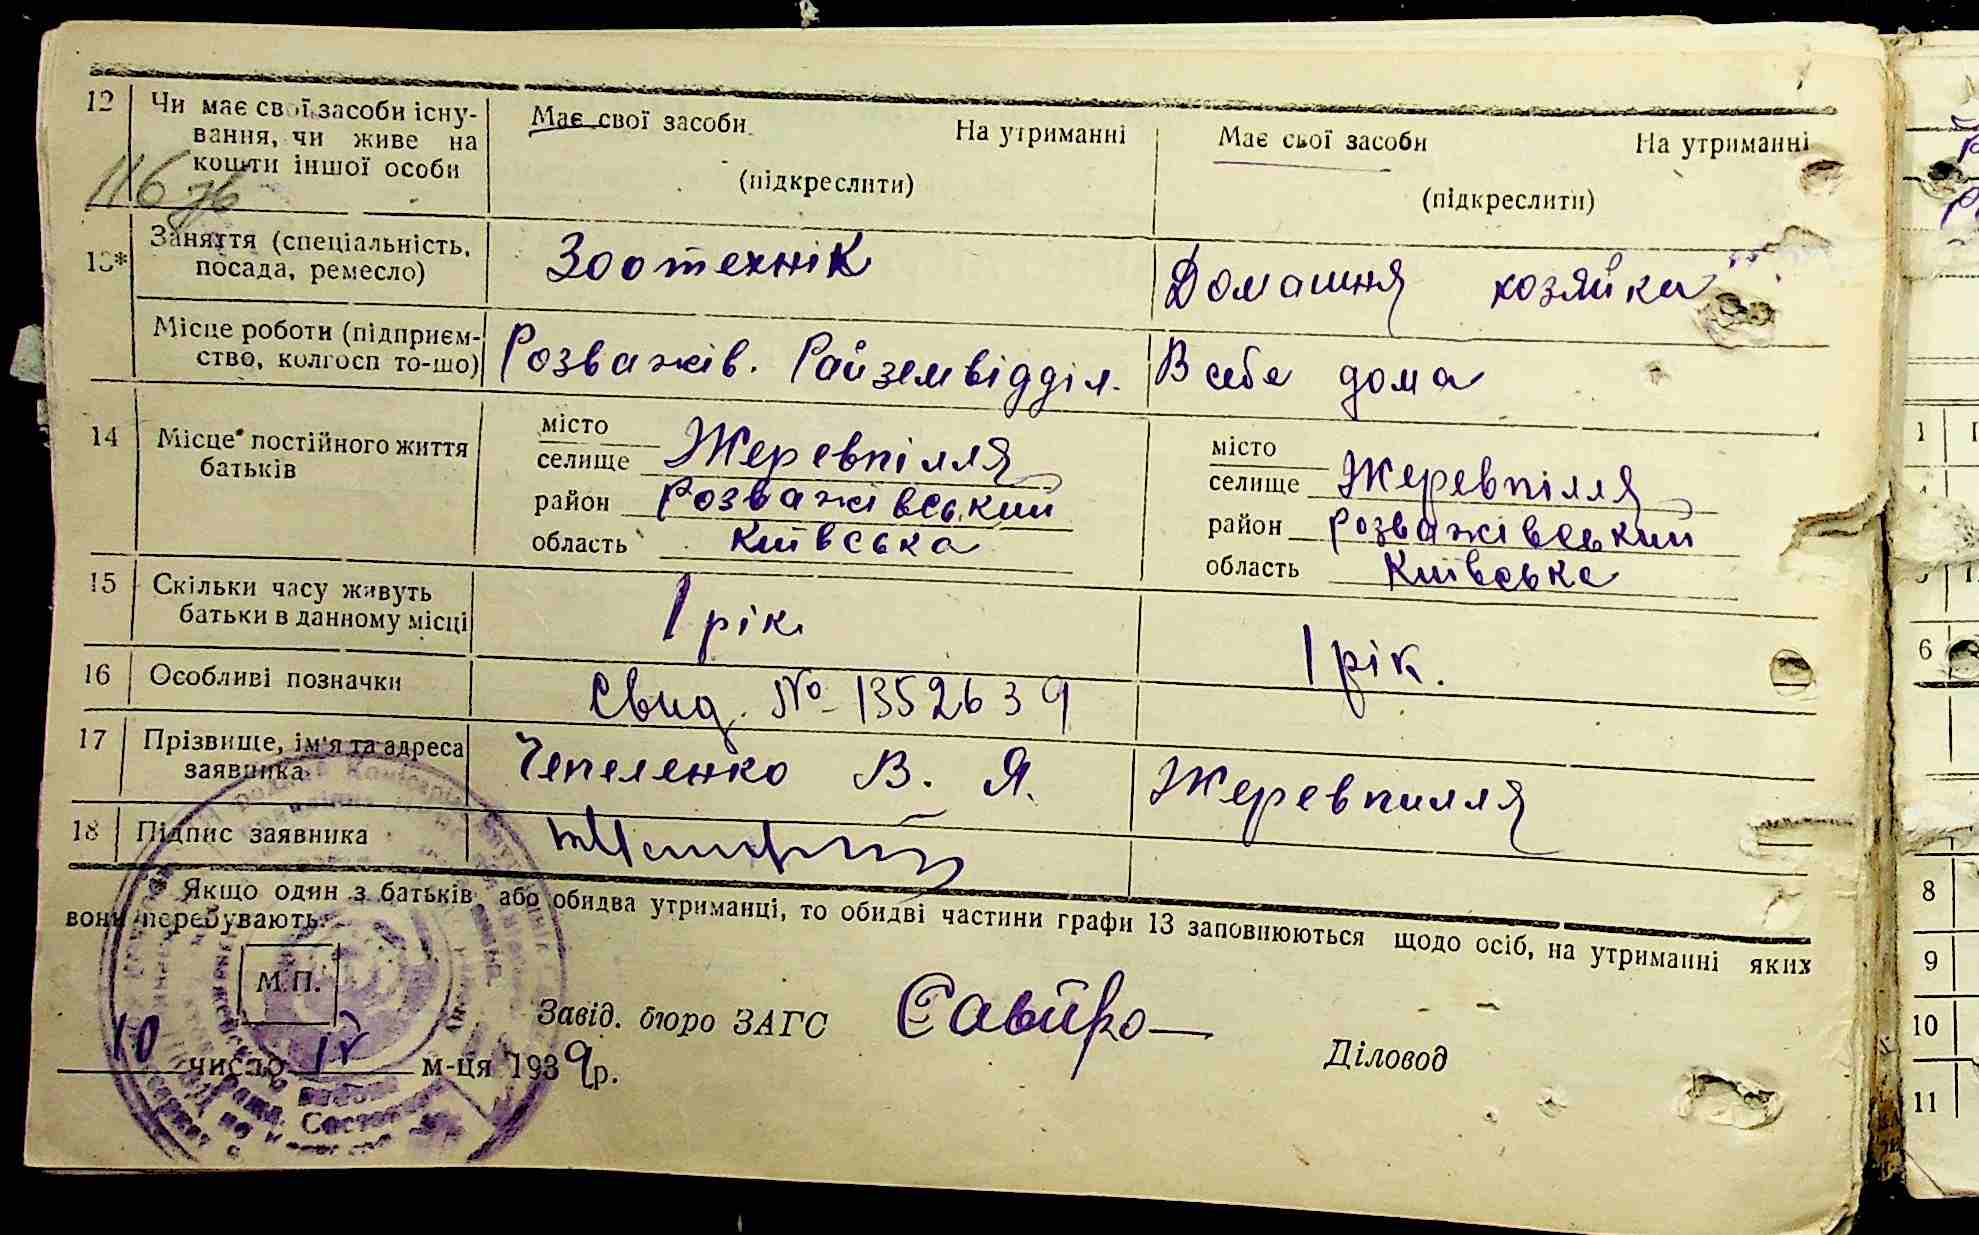 12 Чи має свої засоби існу-
вання, чи живе на
кошти іншої особи
Має свої засоби На утриманні
(підкреслити)
Має свої засоби На утриманні
(підкреслити)
116
13* Заняття (спеціальність,
посада, ремесло)
Зоотехнік
Домашня хозяйка
Місце роботи (підприєм-
ство, колгосп то-що)
Розважів. Райземвідділ.
В себе дома
14 Місце постійного життя
батьків
місто
селище Жеревпілля
район Розважівський
область Київська
місто
селище Жеревпілля
район Розважівський
область Київська
15 Скільки часу живуть
батьки в данному місці
1 рік
1 рік.
16 Особливі позначки
Свид. № 1352639
17 Прізвище, ім'я та адреса
заявника
Чепеленко В. Я.
Жеревпилля
18 Підпис заявника
Якщо один з батьків або обидва утриманці, то обидві частини графи 13 заповнюються щодо осіб, на утриманні яких
вони перебувають.
М.П.
Завід. бюро ЗАГС
Діловод
10 число м-ця 1939р.
1
6
8
9
10
11